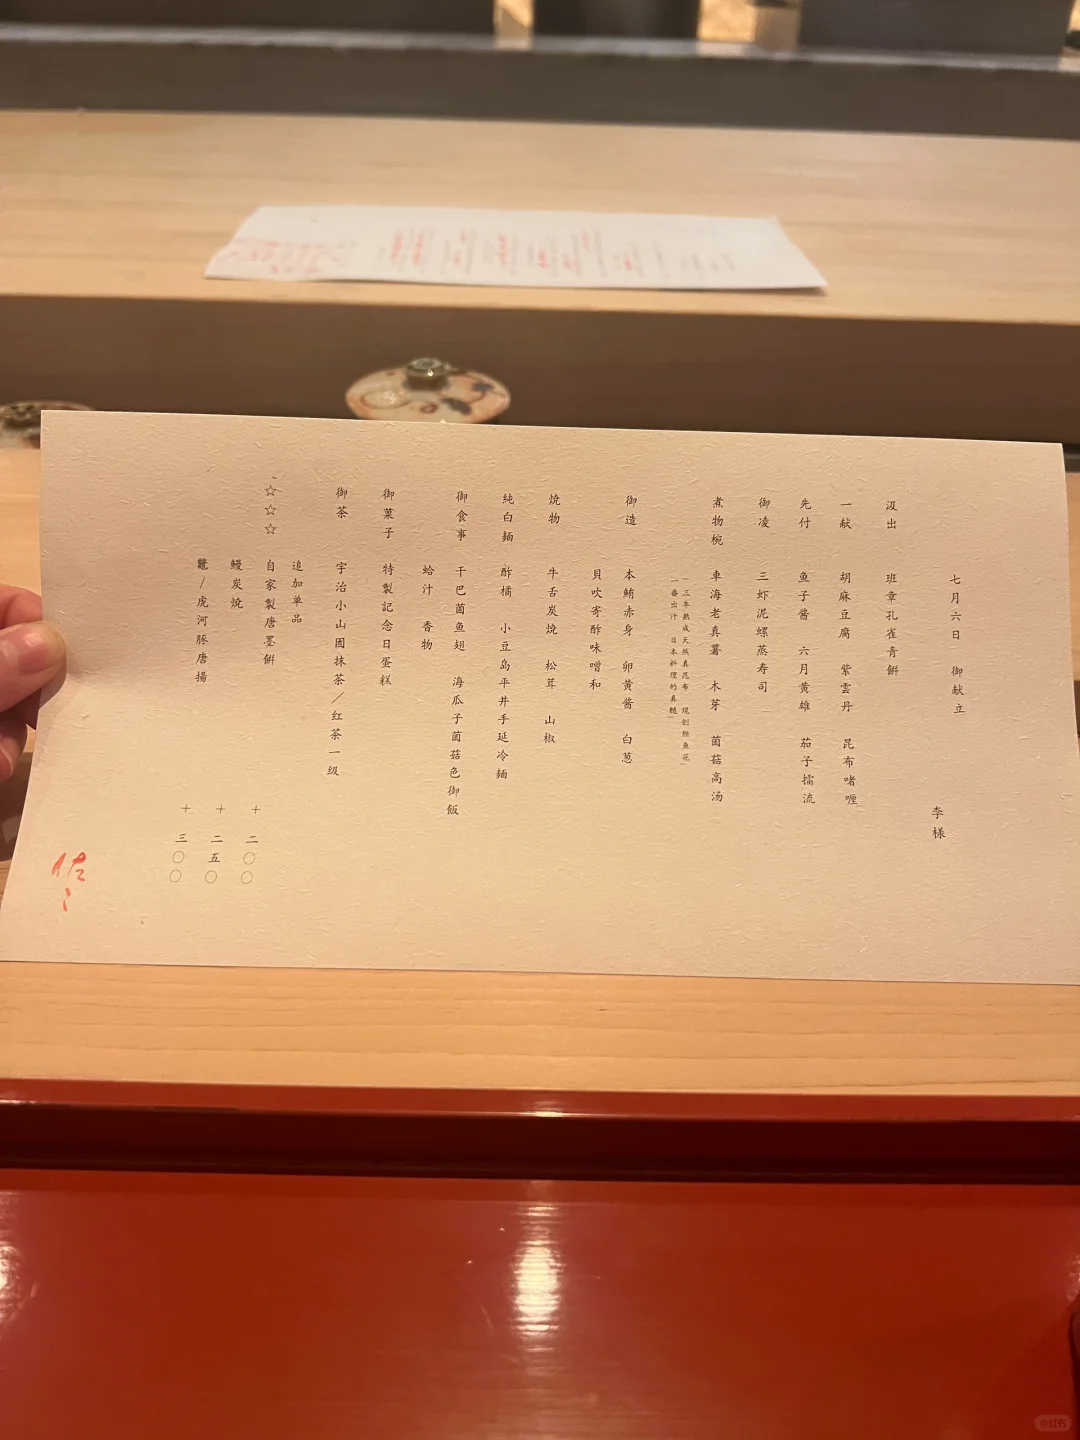 七月六日 御献立
李様
汲出 班章孔雀青餅
一献 胡麻豆腐 紫雲丹 昆布啫喱
先付 鱼子酱 六月黄雄 茄子擂流
御凌 三虾泥螺蒸寿司
煮物椀 車海老真薯 木芽 菌菇高汤
「三年熟成天然真昆布 现刨鲣鱼花」
「一番出汁 日本料理的真髓」
御造 本鮪赤身 卵黄酱 白葱
貝吹寄酢味噌和
焼物 牛舌炭焼 松茸 山椒
純白麺 酢橘 小豆島平井手延冷麺
御食事 干巴菌鱼翅 海瓜子菌菇色御飯
蛤汁 香物
御菓子 特製記念日蛋糕
御茶 宇治小山園抹茶/红茶一级
追加单品
☆☆☆ 自家製唐墨餅 十二〇〇
鳗炭焼 十二五〇
鼈/虎河豚唐揚 十三〇〇
小红书